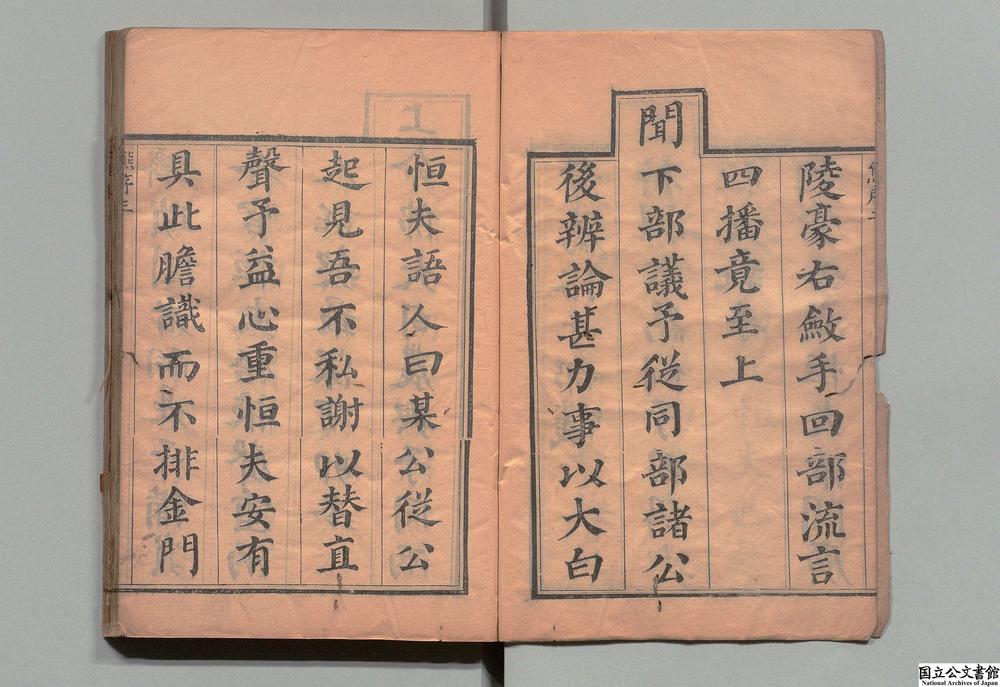 陵豪右斂手回部流言
四播竟至上
聞下部議予從同部諸公
後辨論甚力事以大白
恒夫語人曰某公從公
起見吾不私謝以替直
聲予益心重恒夫安有
具此膽識而不排金門
熊序三
国立公文書館
National Archives of Japan